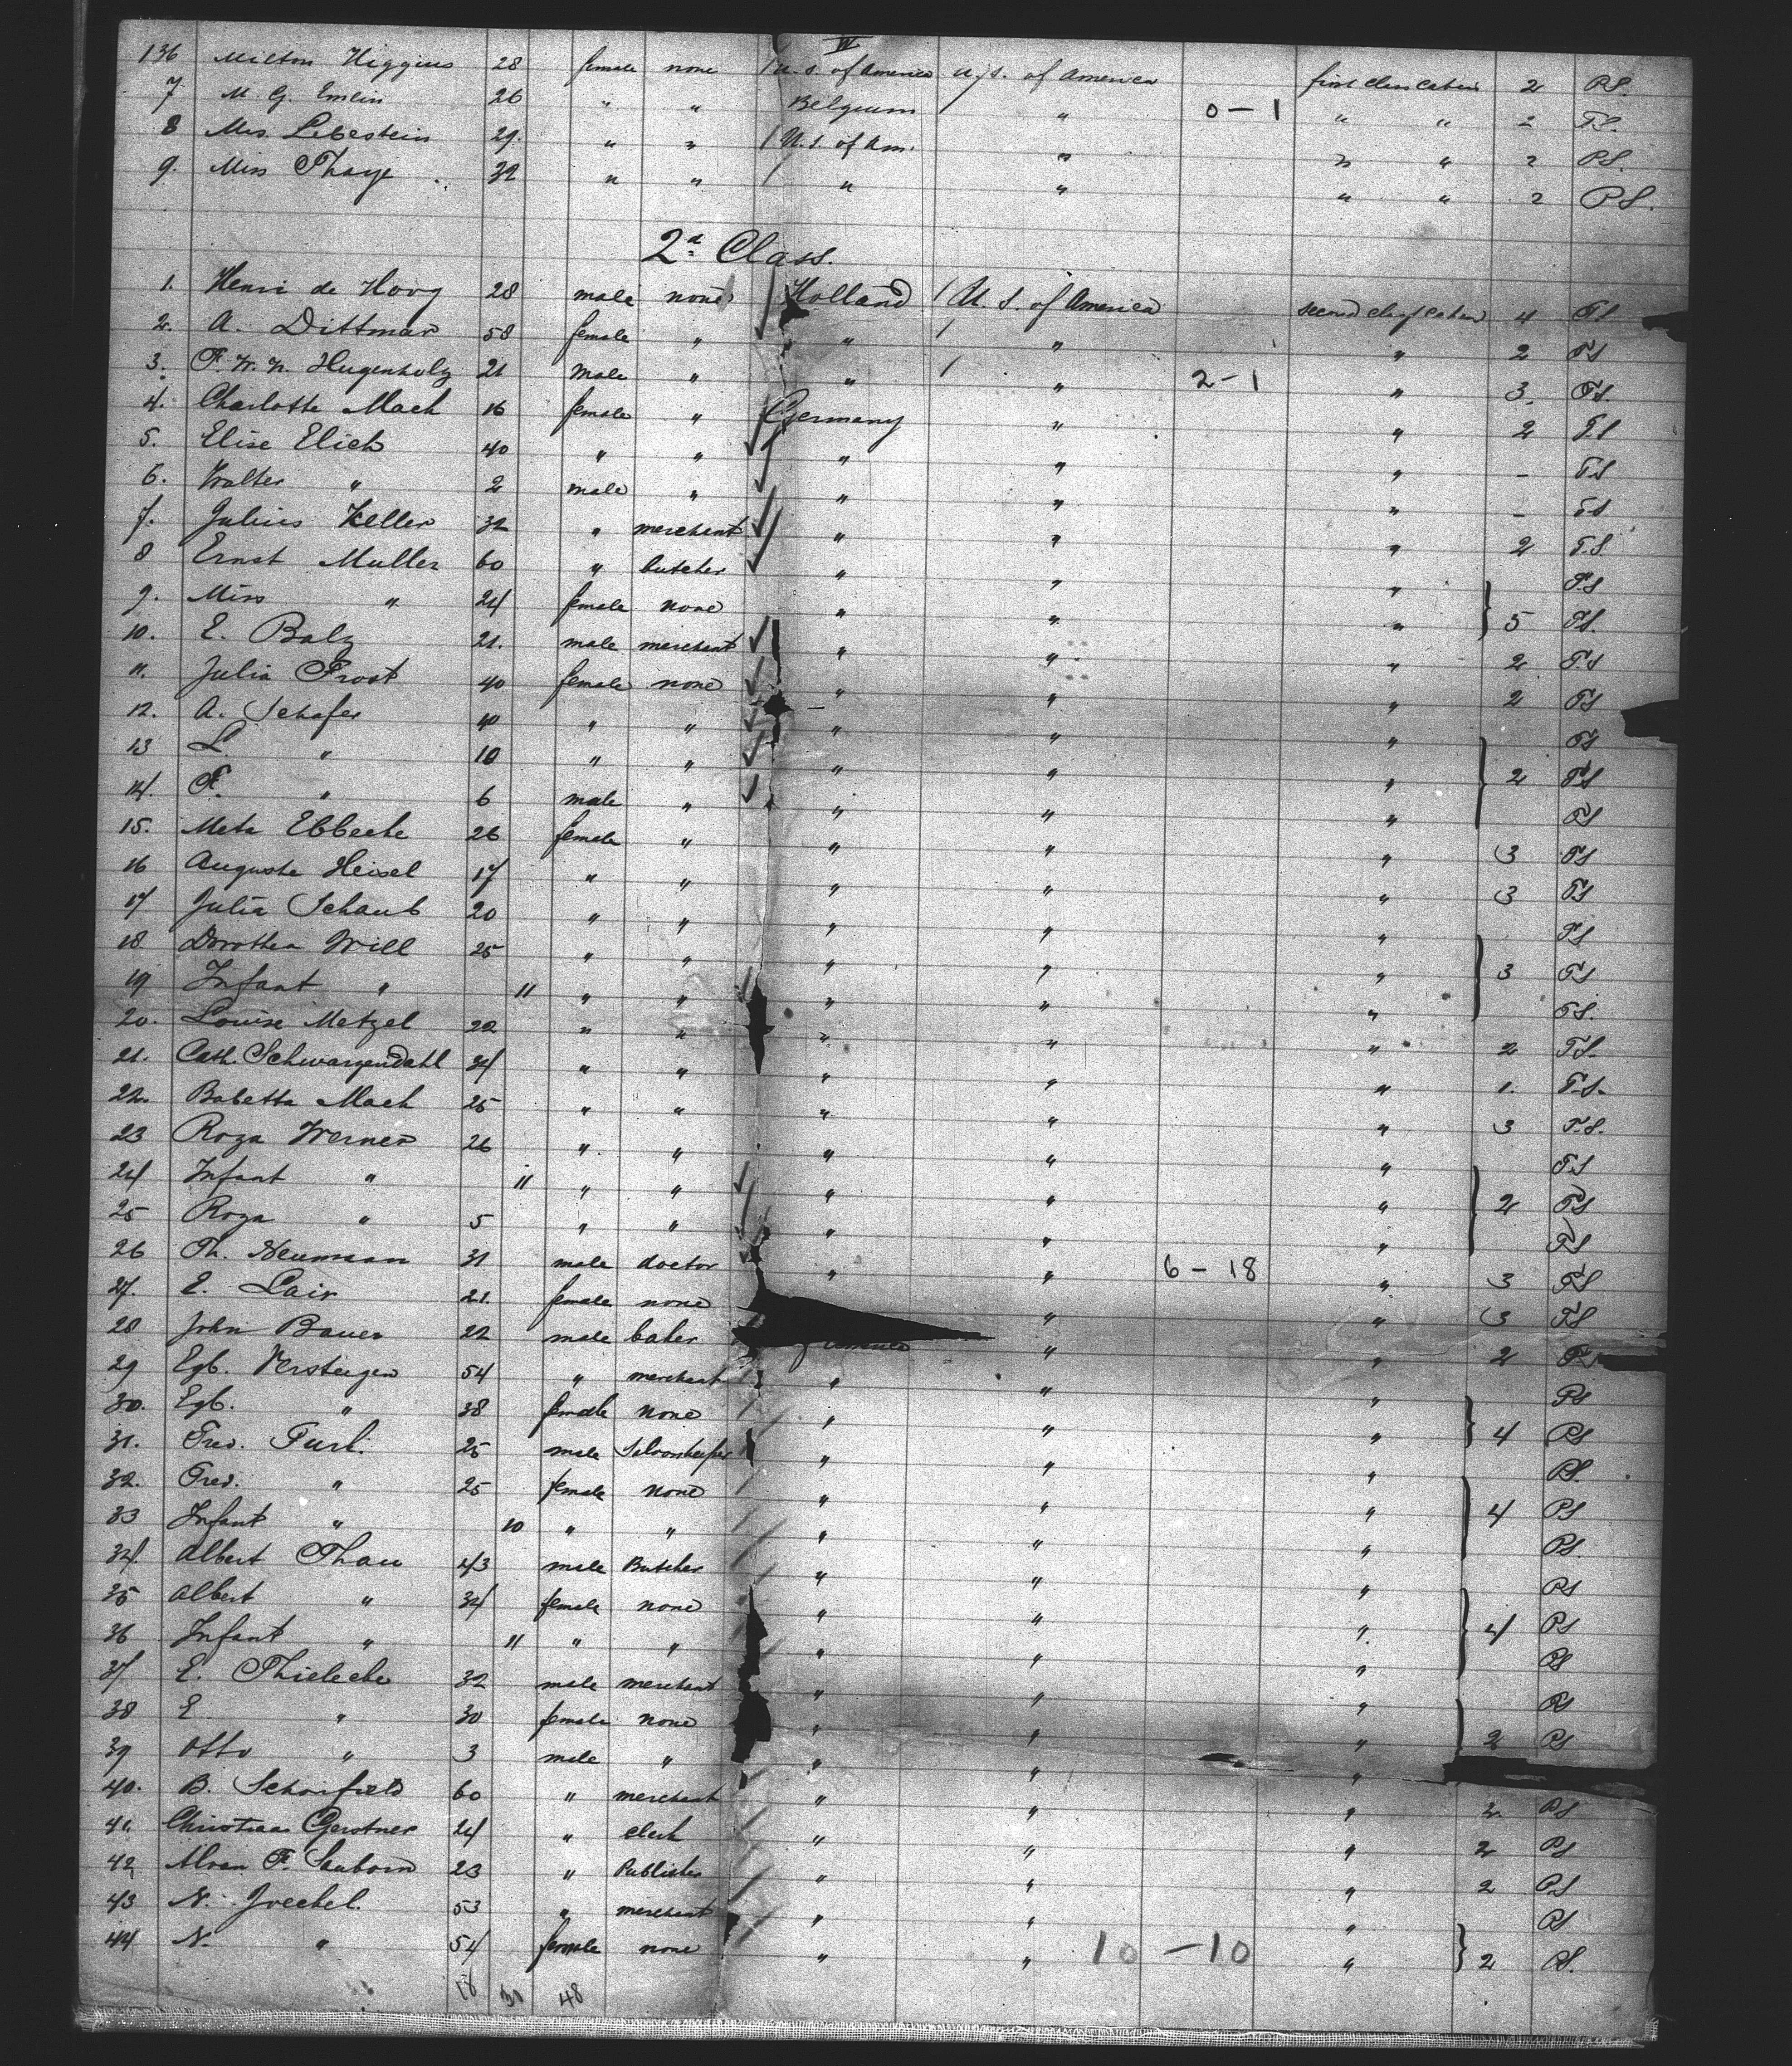 VI
136 Milton Higgins 28 female none U. S. of America U. S. of America first class cabin 2 PS.
7. M. G. Emlin 26 " " Belgium " 0 – 1 " " 2 TS.
8 Mrs. Lebestein 29. " " U. S. of Am. " " " 2 PS.
9. Miss Thaye 32 " " " " " " 2 PS.
2d Class.
1. Henri de Hoog 28 male none Holland U. S. of America second class cabin 4 T.S
2. A. Dittmar 58 female " " " " 2 TS
3. F. W. N. Hugenholz 21 male " " " 2 – 1 " 3. TS.
4. Charlotte Mach 16 female " Germany " " 2 T.S
5. Elise Elich 40 " " " " " – TS
6. Walter " 2 male " " " " – TS
7. Julius Keller 32 " merchant " " " 2 T.S.
8 Ernst Muller 60 " butcher " " " TS
9. Miss " 24 female none " " " 5 TS.
10. E. Balz 21. male merchant " " " 2 TS
11. Julia Prost 40 female none " " " 2 TS
12. A. Schafer 40 " " " " " TS
13 L. " 10 " " " " " 2 TS
14. F. " 6 male " " " " TS
15. Meta Ebbecke 26 female " " " " 3 TS
16 Auguste Heisel 17 " " " " " 3 TS
17 Julia Schaub 20 " " " " " TS
18. Dorothea Will 25 " " " " " 3 TS
19 Infant " 11 " " " " " TS.
20. Louise Metzel 22 " " " " " 2 T.S.
21. Cath. Schwarzendahl 34 " " " " " 1. T.S.
22. Babetta Mach 25 " " " " " 3 T.S.
23 Roza Werner 26 " " " " " TS
24 Infant " 11 " " " " " 2 TS
25 Roza " 5 " " " " " TS
26 Th. Neumann 31 male doctor " " 6 – 18 " 3 TS
27. E. Lair 21. female none " " 3 TS
28 John Bauer 22 male baker " " 2
29 Egb. Versteegen 54 " merchant " " " PS
30. Egb. " 38 female none " " " 4 PS
31. Fred. 25 male Saloonkeeper " " " PS.
32. Fred. " 25 female none " " " 4 PS
33 Infant " 10 " " " " " PS.
34. Albert Thau 43 male Butcher " " " PS
35 Albert " 34 female none " " " 4 PS
36 Infant " 11 " " " " " PS
37 E. Thielecke 32 male merchant " " " PS
38 E. " 30 female none " " " 2 PS
39 Otto " 3 male " " " "
40. B. Schonfield 60 " merchant " " " 2 PS
41. Christian Gerstner 24 " clerk " " " 2 PS
42. Alvan F. Sanborn 23 " Publisher " " " 2 PS
43 N. Joeckel. 53 " merchant " " " PS
44 N. " 54 female none " " 10 – 10 " 2 PS.
18 30 48